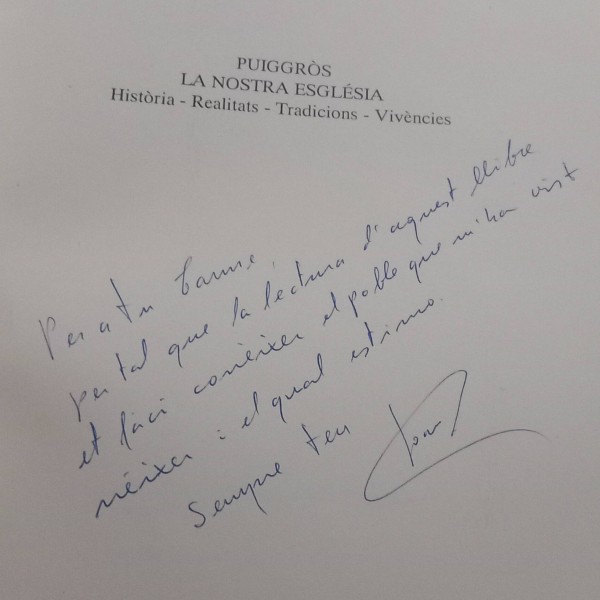 PUIGGRÒS
LA NOSTRA ESGLÉSIA
Història - Realitats - Tradicions - Vivències
Per a tu Carme,
per tal que la lectura d'aquest llibre
et faci conèixer el poble que m'ha vist
néixer i el qual estimo.
Sempre teu